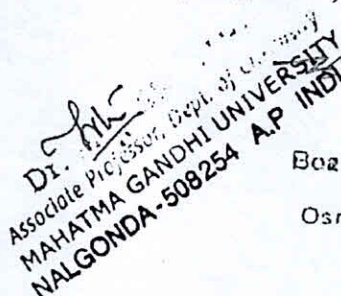 Dr.
Associate Professor, Dept. of
MAHATMA GANDHI UNIVERSITY
NALGONDA-508254 A.P INDI
Boa
Osr